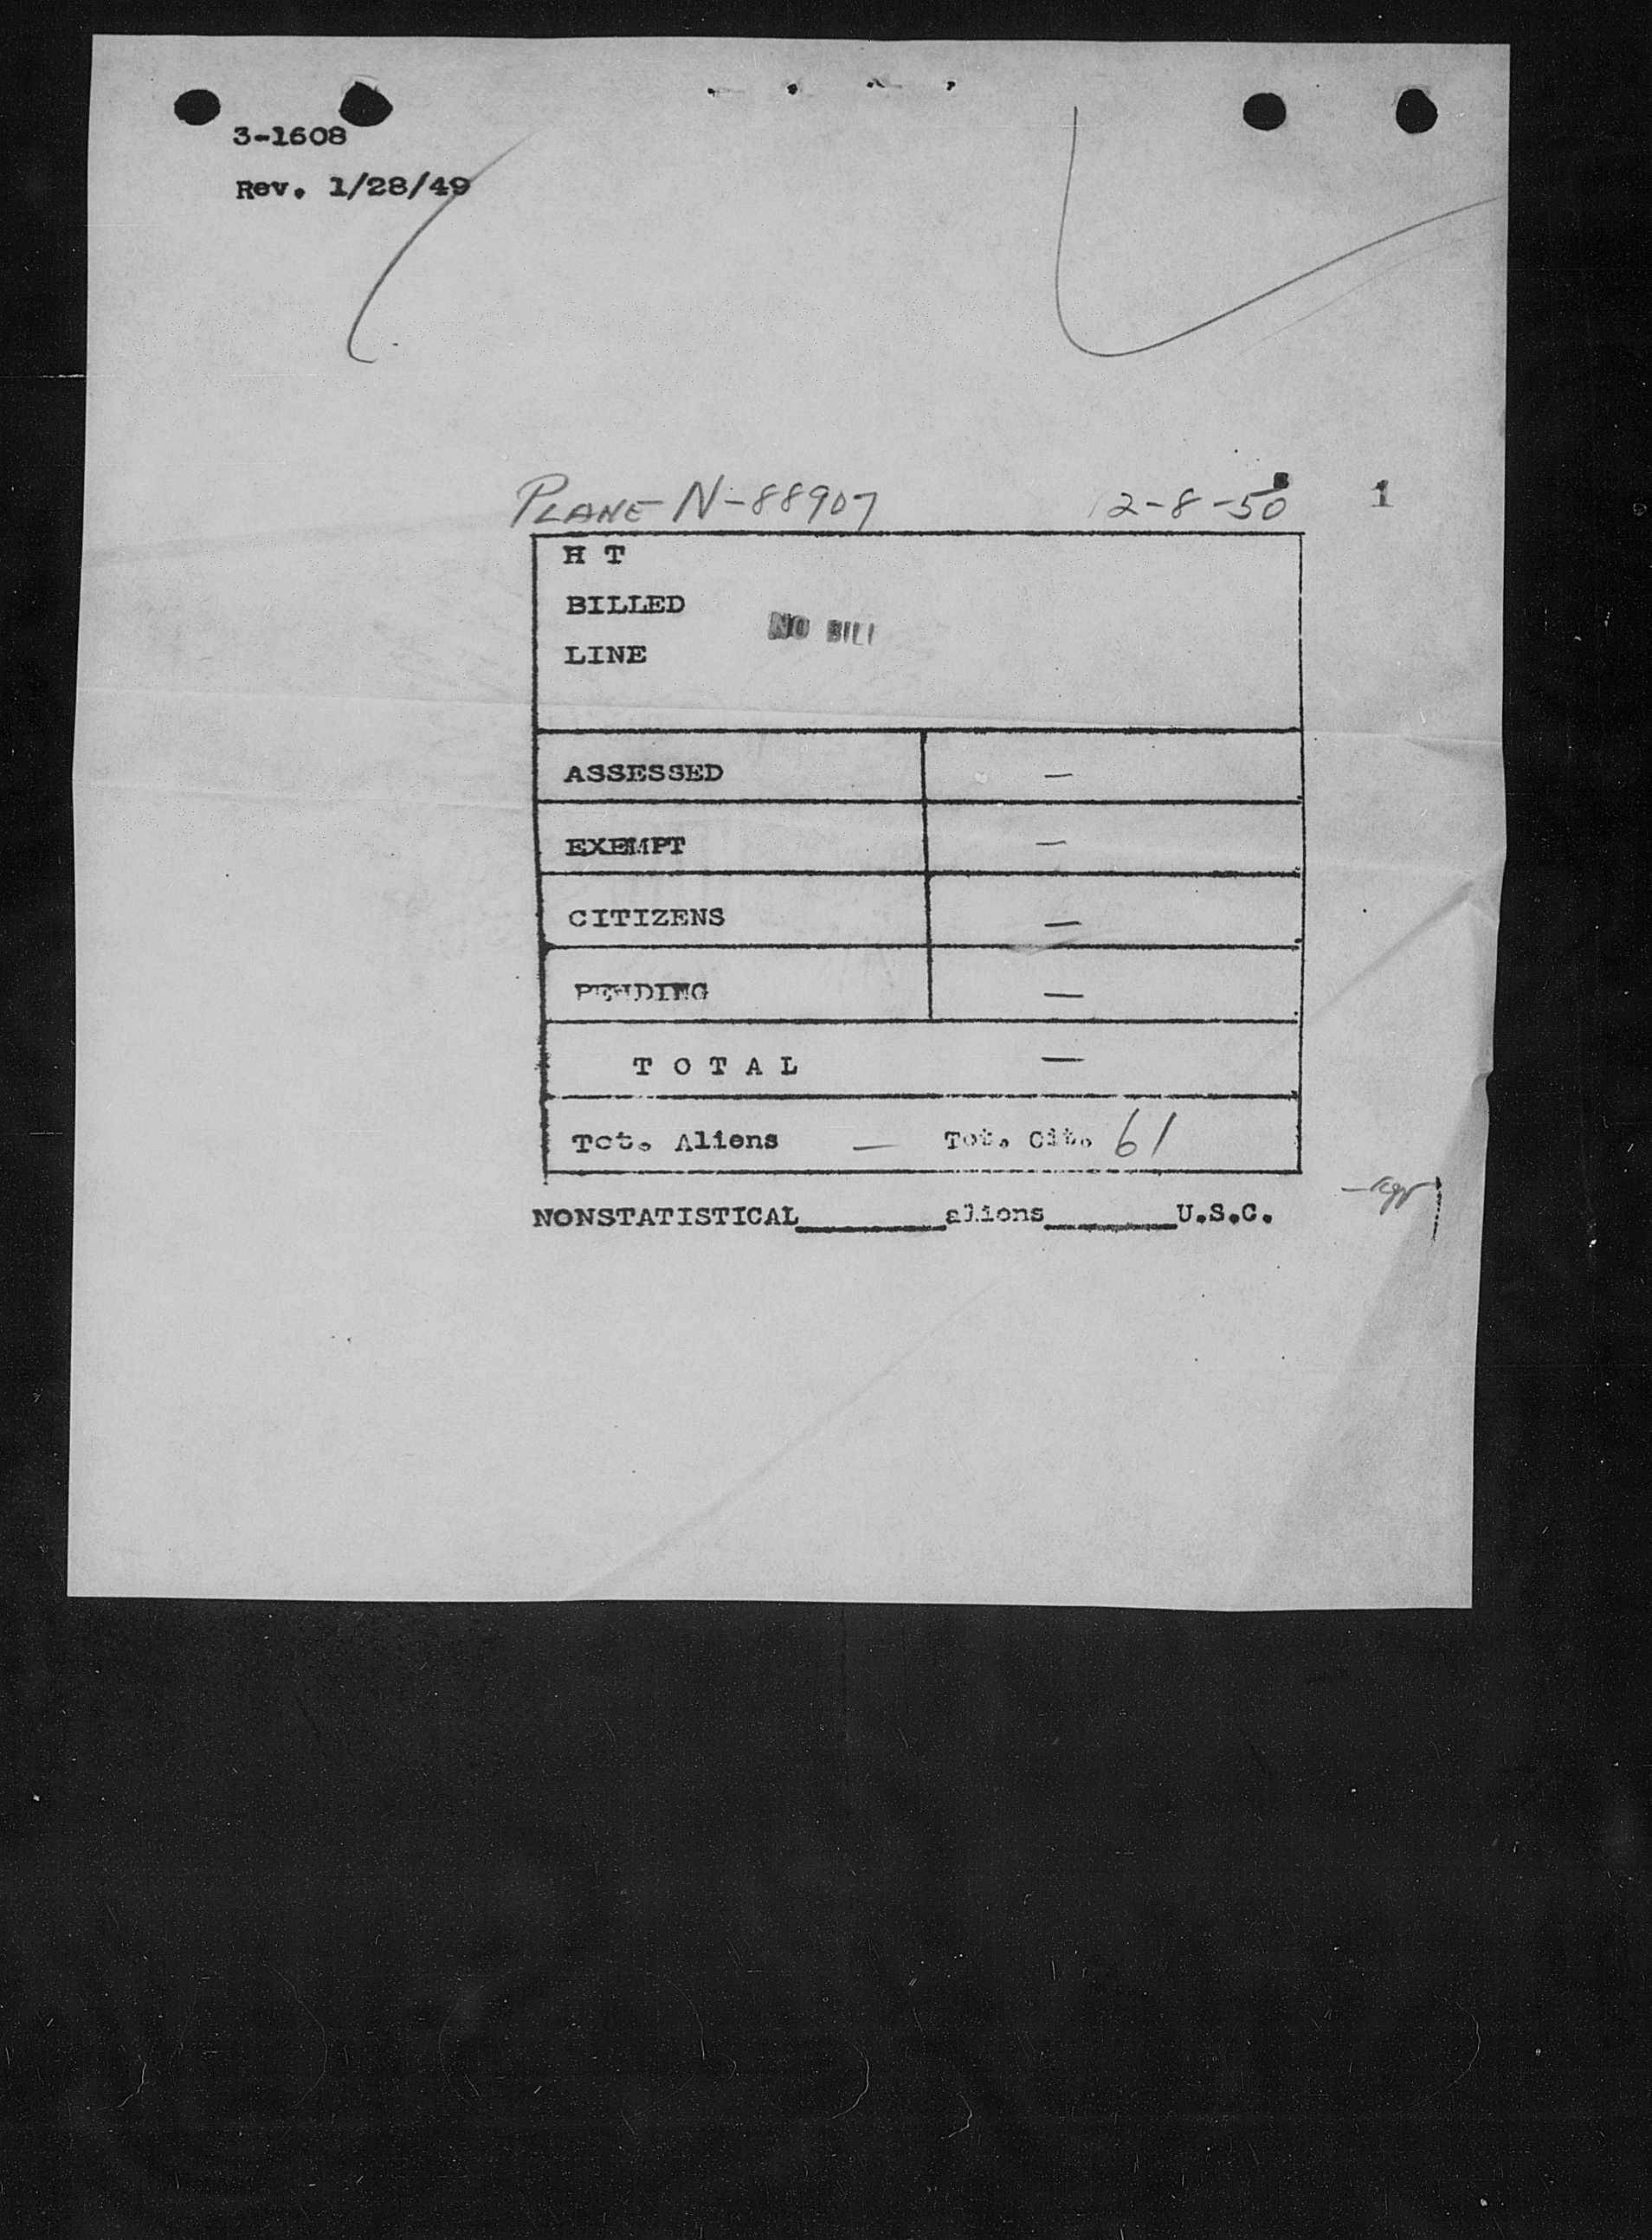 3-1608
Rev. 1/28/49
PLANE N-88907 12-8-50 1
H T
BILLED
NO BILL
LINE
ASSESSED —
EXEMPT —
CITIZENS —
PENDING —
T O T A L —
Tot. Aliens — Tot. Cit. 61
NONSTATISTICAL_______aliens_______U.S.C.